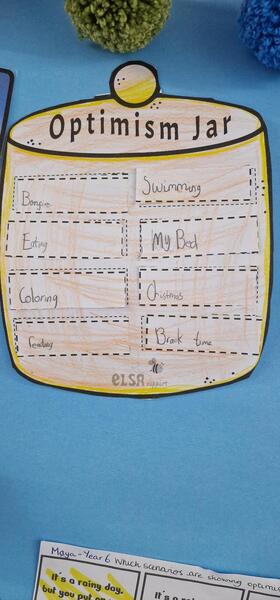 Optimism Jar
Swimming
Eating
My Bed
Coloring
Christmas
reading
Break time
ELSA support
Maya - Year 6 Which scenarios are showing optimi
It's a rainy day,
but you put on
It's a r